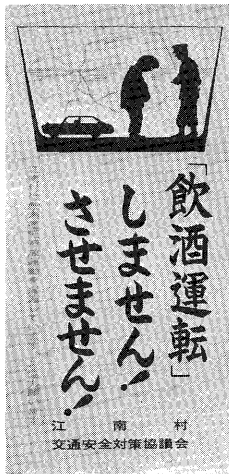 「飲酒運転」
しません!
させません!
江南村
交通安全対策協議会